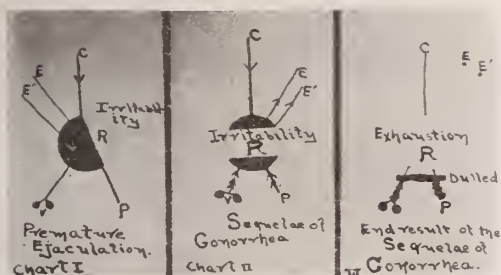 C
E
E'
Irritabil-
ity
R
V
P
Premature
Ejaculation.
Chart I
C
E
E'
Irritability
R
V
P
Sequelae of
Gonorrhea
Chart II
C
E
E'
Exhaustion
R
Dulled
P
End result of the
Sequelae of
Gonorrhea.